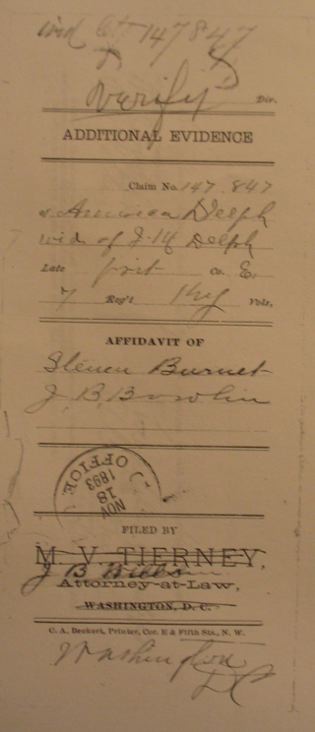 wid Ct 147847
Verify Div.
ADDITIONAL EVIDENCE
Claim No. 147.847
America Delph
wid of J H Delph
Late prvt Co. E.
7 Reg't Ky Vols.
AFFIDAVIT OF
Steven Burnet
J. B. Bowlin
OFFICE
NOV
18
1893
FILED BY
M. V. TIERNEY,
J B
Attorney-at-Law,
WASHINGTON, D. C.
C. A. Deckert, Printer, Cor. E & Fifth Sts., N. W.
Washington
DC